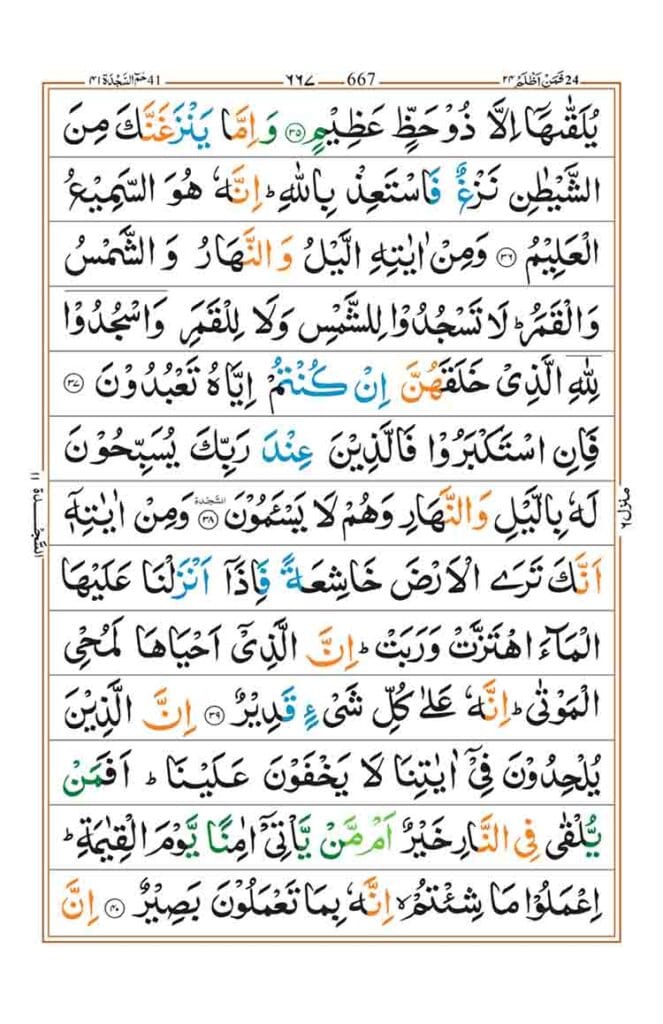 فَمَنْ اَظْلَمُ ٢٤ 24 667 ٦٦٧ حٰمٓ السَّجْدَة ٤١ 41
يُلَقّٰىهَاۤ اِلَّا ذُوْ حَظٍّ عَظِيْمٍ ﴿۳۵﴾ وَ اِمَّا يَنْزَغَنَّكَ مِنَ
الشَّيْطٰنِ نَزْغٌ فَاسْتَعِذْ بِاللّٰهِ ؕ اِنَّهٗ هُوَ السَّمِيْعُ
الْعَلِيْمُ ﴿۳۶﴾ وَمِنْ اٰيٰتِهِ الَّيْلُ وَ النَّهَارُ وَ الشَّمْسُ
وَ الْقَمَرُ ؕ لَا تَسْجُدُوْا لِلشَّمْسِ وَلَا لِلْقَمَرِ وَاسْجُدُوْا
لِلّٰهِ الَّذِىْ خَلَقَهُنَّ اِنْ كُنْتُمْ اِيَّاهُ تَعْبُدُوْنَ ﴿۳۷﴾
فَاِنِ اسْتَكْبَرُوْا فَالَّذِيْنَ عِنْدَ رَبِّكَ يُسَبِّحُوْنَ
لَهٗ بِالَّيْلِ وَالنَّهَارِ وَهُمْ لَا يَسْـَٔمُوْنَ ۩ السَّجْدَة ﴿۳۸﴾ وَمِنْ اٰيٰتِهٖۤ
اَنَّكَ تَرَى الْاَرْضَ خَاشِعَةً فَاِذَاۤ اَنْزَلْنَا عَلَيْهَا
الْمَآءَ اهْتَزَّتْ وَرَبَتْ ؕ اِنَّ الَّذِىْۤ اَحْيَاهَا لَمُحْىِ
الْمَوْتٰى ؕ اِنَّهٗ عَلٰى كُلِّ شَىْءٍ قَدِيْرٌ ﴿۳۹﴾ اِنَّ الَّذِيْنَ
يُلْحِدُوْنَ فِىْۤ اٰيٰتِنَا لَا يَخْفَوْنَ عَلَيْنَا ؕ اَفَمَنْ
يُّلْقٰى فِى النَّارِ خَيْرٌ اَمْ مَّنْ يَّاْتِىْۤ اٰمِنًا يَّوْمَ الْقِيٰمَةِ ؕ
اِعْمَلُوْا مَا شِئْتُمْ ۙ اِنَّهٗ بِمَا تَعْمَلُوْنَ بَصِيْرٌ ﴿۴۰﴾ اِنَّ
منزل ٦
السَّجْدَة ١١